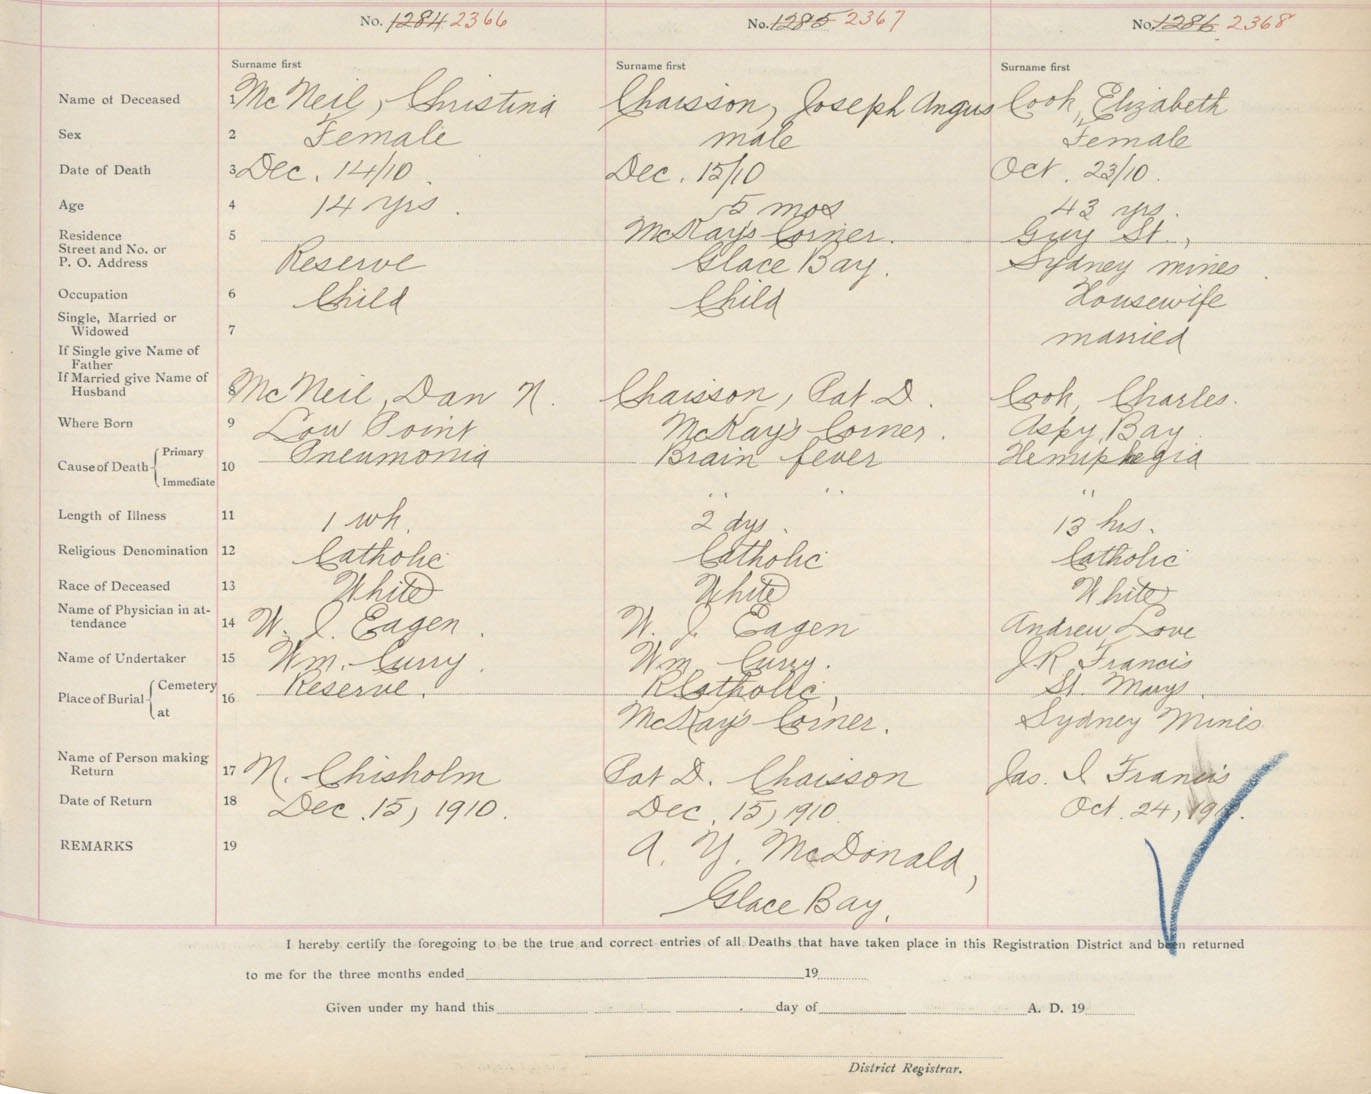 No. 1284 2366 No. 1285 2367 No. 1286 2368
Surname first Surname first Surname first
Name of Deceased 1 McNeil, Christina Chaisson, Joseph Angus Cook, Elizabeth
Sex 2 Female male Female
Date of Death 3 Dec. 14/10. Dec. 15/10 Oct. 23/10.
Age 4 14 yrs. 5 mos 43 yrs.
Residence 5 McKay's Corner. Guy St.,
Street and No. or
P. O. Address Reserve Glace Bay. Sydney mines.
Occupation 6 Child Child Housewife
Single, Married or
Widowed 7 married
If Single give Name of
Father
If Married give Name of
Husband 8 McNeil, Dan N. Chaisson, Pat. D. Cook, Charles.
Where Born 9 Low Point McKay's Corner. Aspy Bay
Cause of Death Primary Pneumonia Brain fever Hemiphegia
10
Immediate " " "
Length of Illness 11 1 wk. 2 dys. 13 hrs.
Religious Denomination 12 Catholic Catholic Catholic
Race of Deceased 13 White White White
Name of Physician in at-
tendance 14 W. J. Eagen. W. J. Eagen Andrew Love
Name of Undertaker 15 Wm. Curry. Wm. Curry. J R Francis
Place of Burial Cemetery 16 Reserve. R. Catholic, St. Marys.
at McKay's Corner. Sydney Mines
Name of Person making
Return 17 N. Chisholm Pat D. Chaisson Jas. I Francis
Date of Return 18 Dec. 15, 1910. Dec. 15, 1910 Oct. 24, 1910.
REMARKS 19 A. Y. McDonald,
Glace Bay.
I hereby certify the foregoing to be the true and correct entries of all Deaths that have taken place in this Registration District and been returned
to me for the three months ended 19
Given under my hand this day of A. D. 19
District Registrar.